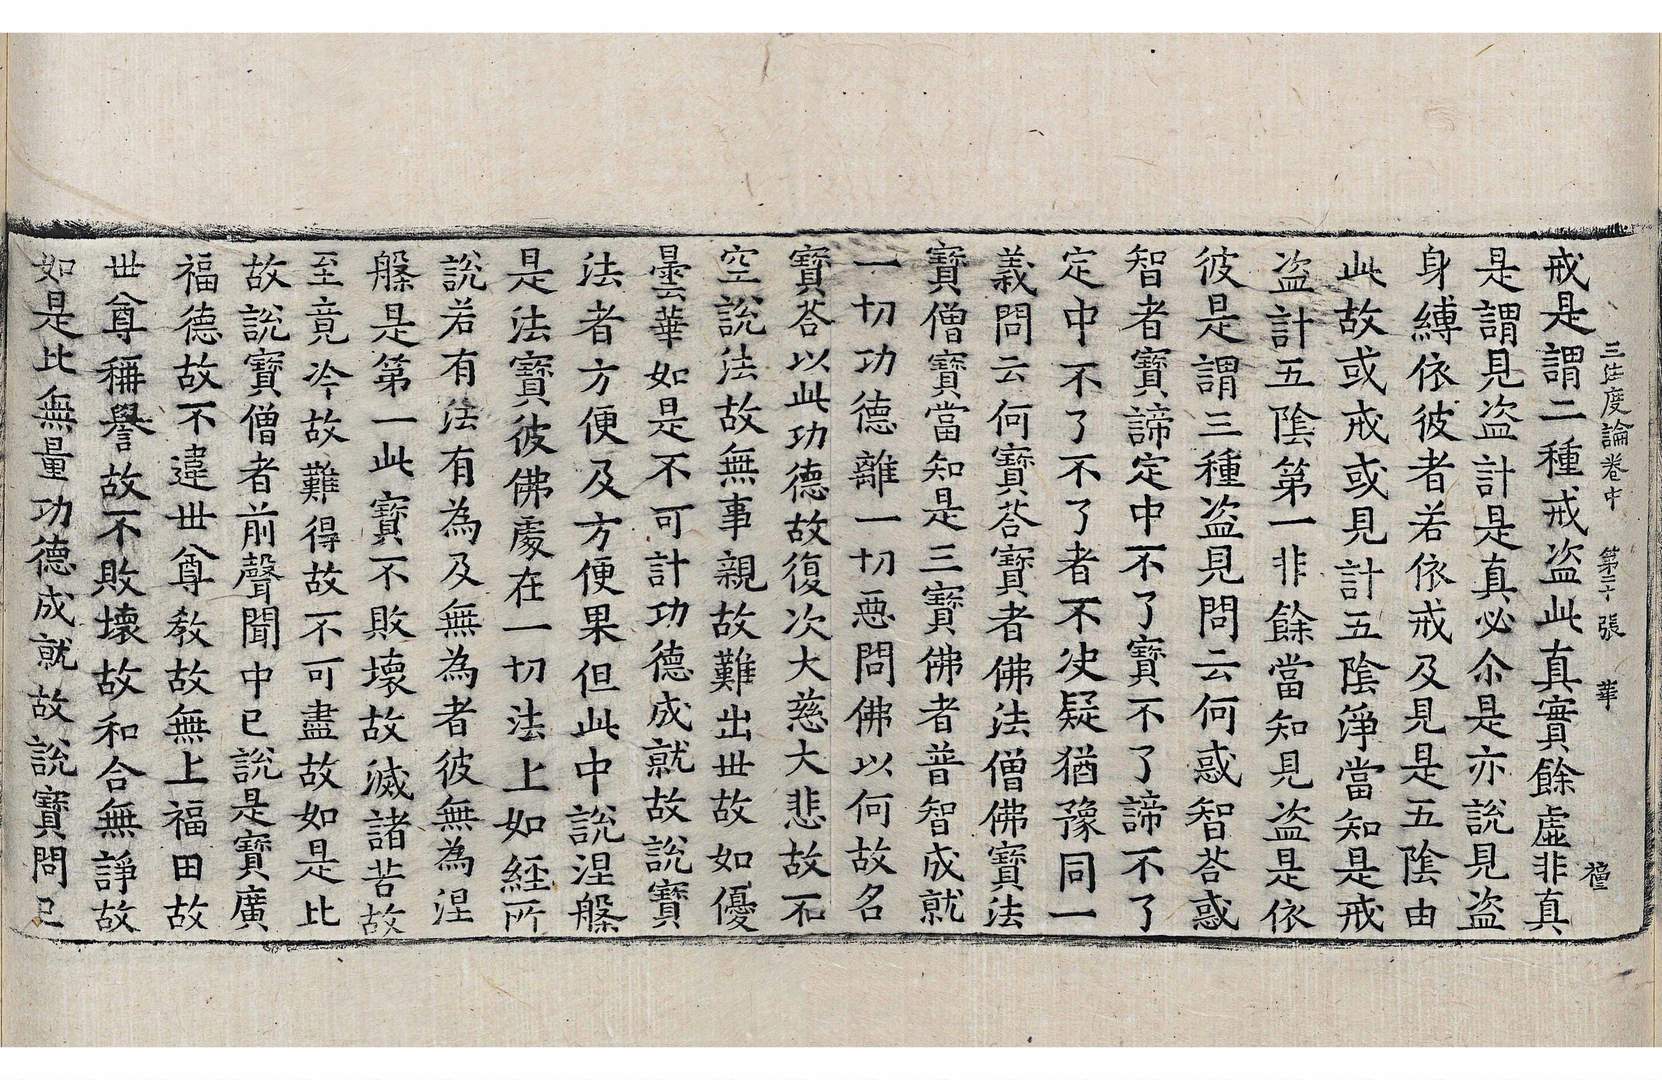 三法度論卷中　第二十張　華　種
戒是謂二種戒盜此真實餘虛非真
是謂見盜計是真必尒是亦說見盜
身縛依彼者若依戒及見是五陰由
此故或戒或見計五陰淨當知是戒
盜計五陰第一非餘當知見盜是依
彼是謂三種盜見問云何惑智荅惑
智者寶諦定中不了寶不了諦不了
定中不了不了者不決疑猶豫同一
義問云何寶荅寶者佛法僧佛寶法
寶僧寶當知是三寶佛者普智成就
一切功德離一切惡問佛以何故名
寶荅以此功德故復次大慈大悲故不
空說法故無事親故難出世故如優
曇華如是不可計功德成就故說寶
法者方便及方便果但此中說涅槃
是法寶彼佛處在一切法上如經所
說若有法有為及無為者彼無為涅
槃是第一此寶不敗壞故滅諸苦故
至竟冷故難得故不可盡故如是比
故說寶僧者前聲聞中已說是寶廣
福德故不違世尊教故無上福田故
世尊稱譽故不敗壞故和合無諍故
如是比無量功德成就故說寶問已